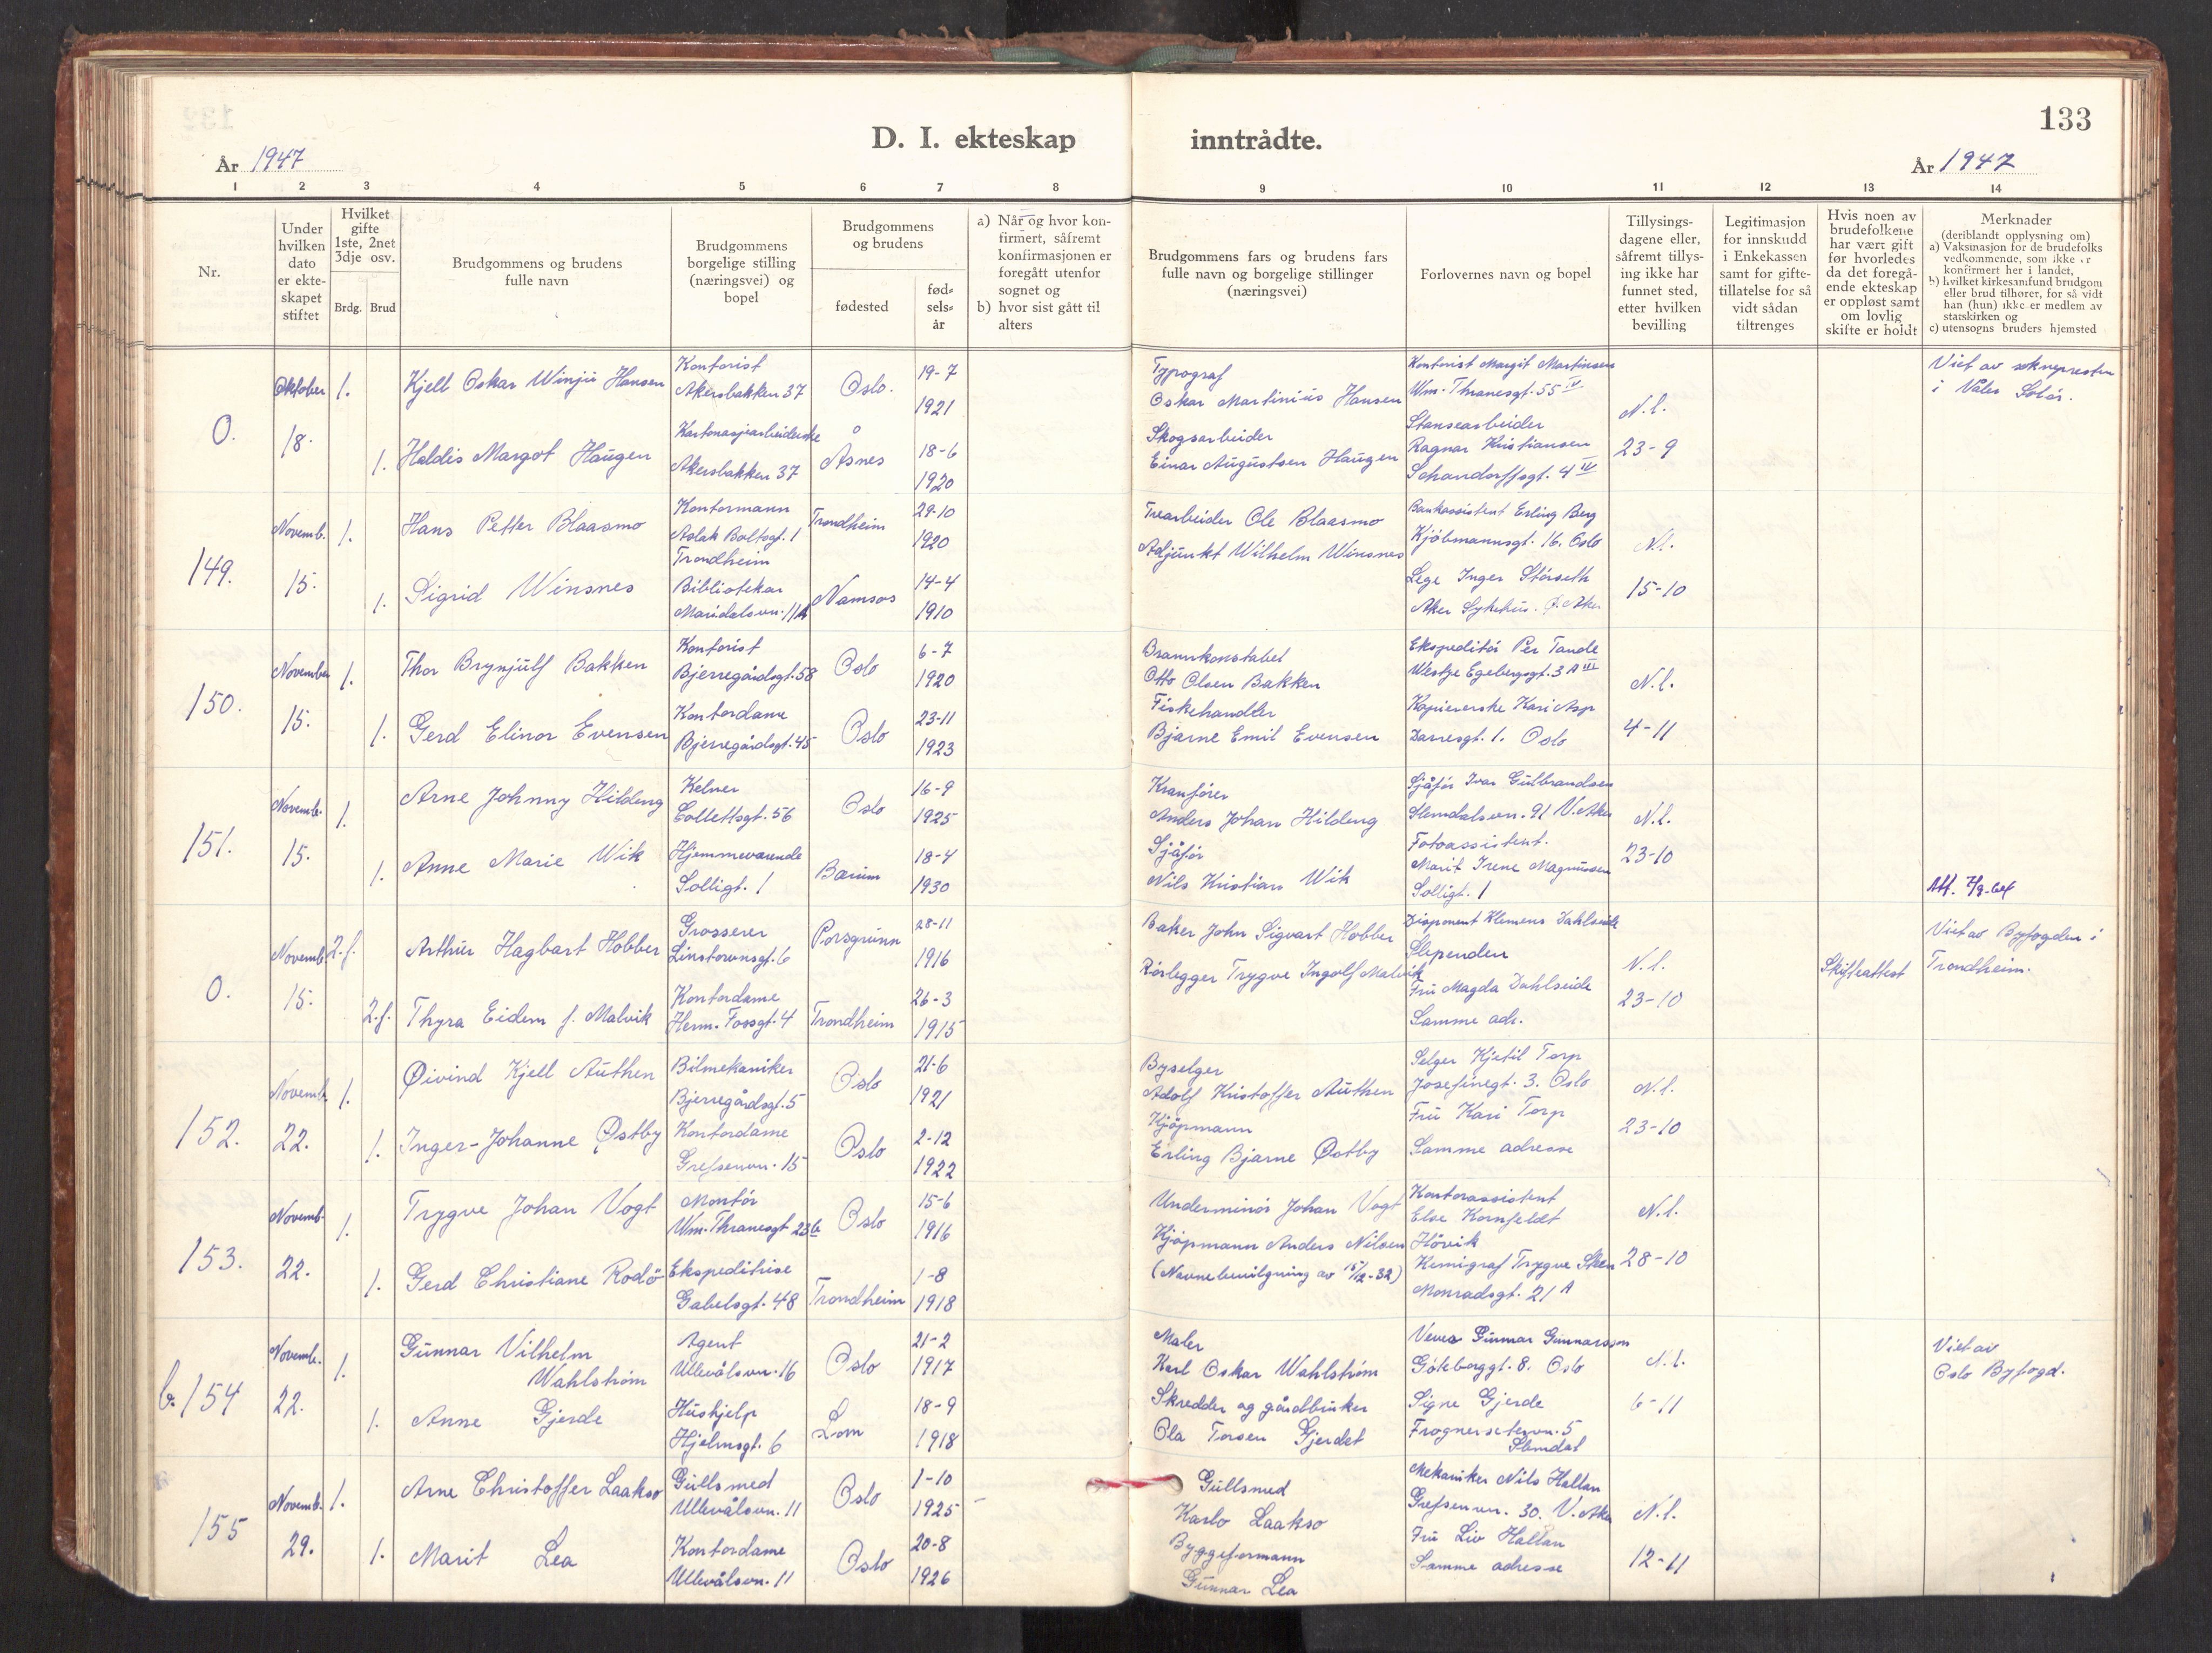 133
D. I. ekteskap inntrådte.
År 1947
År 1947
1 2 3 4 5 6 7 8 9 10 11 12 13 14
Nr.
Under hvilken dato er ekte-skapet stiftet
Hvilket gifte 1ste, 2net 3dje osv.
Brdg. Brud
Brudgommens og brudens fulle navn
Brudgommens borgelige stilling (næringsvei) og bopel
Brudgommens og brudens
fødested
fød-sels-år
a) Når og hvor kon-firmert, såfremt konfirmasjonen er foregått utenfor sognet og
b) hvor sist gått til alters
Brudgommens fars og brudens fars fulle navn og borgelige stillinger (næringsvei)
Forlovernes navn og bopel
Tillysings-dagene eller, såfremt tillys-ing ikke har funnet sted, etter hvilken bevilling
Legitimasjon for innskudd i Enkekassen samt for gifte-tillatelse for så vidt sådan tiltrenges
Hvis noen av brudefolkene har vært gift før hvorledes da det foregå-ende ekteskap er oppløst samt om lovlig skifte er holdt
Merknader (deriblandt opplysning om)
a) Vaksinasjon for de brudefolks vedkommende, som ikke er konfirmert her i landet,
b) hvilket kirkesamfund brudgom eller brud tilhører, for så vidt han (hun) ikke er medlem av statskirken og
c) utensogns bruders hjemsted
0.
Oktober 18.
1. Kjell Oskar Winju Hansen
Kontorist
Akersbakken 37
Oslo.
19-7
1921
1. Haldis Margot Haugen
Kartonasjearbeiderske
Akersbakken 37
Åsnes
18-6
1920
Typograf
Oskar Martinius Hansen
Skogsarbeider
Einar Augustsen Haugen
Kontorist Margit Martinsen
Wm. Thranesgt. 55 IV
Stansearbeider
Ragnar Kristiansen
Schandorffsgt. 4 IV
N.l.
23-9
Viet av soknepresten
i Våler Solør.
149.
Novemb. 15.
1. Hans Petter Blaasmo
Kontormann
Aslak Boltsgt. 1
Trondheim
Trondheim
29-10
1920
1. Sigrid Winsnes
Bibliotekar
Maridalsvn. 11A
Namsos
14-4
1910
Trearbeider Ole Blaasmo
Adjunkt Wilhelm Winsnes
Bankassistent Erling Berg
Kjøbmannsgt. 16. Oslo
Lege Inger Störseth
Aker Sykehus. Ø. Aker
N.l.
15-10
150.
November 15.
1. Thor Brynjulf Bakken
Kontorist
Bjerregårdsgt. 58
Oslo
6-7
1920
1. Gerd Elinor Evensen
Kontordame
Bjerregårdsgt. 45
Oslo
23-11
1923
Brannkonstabel
Otto Olsen Bakken
Fiskehandler
Bjarne Emil Evensen
Ekspeditør Per Tande
Westye Egebergsgt. 3 A III
Kopiererske Kari Asp
Darresgt. 1. Oslo
N.l.
4-11
151.
Novemb. 15.
1. Arne Johnny Hildeng
Kelner
Collettsgt. 56
Oslo
16-9
1925
1. Anne Marie Wik
Hjemmeværende
Solligt. 1
Bærum
18-4
1930
Kranfører
Anders Johan Hildeng
Sjåfør
Nils Kristian Wik
Sjåfør Ivar Gulbrandsen
Slemdalsvn. 91 V. Aker
Fotoassistent.
Marit Irene Magnussen
Solligt. 1
N.l.
23-10
Att. 7/9-64
0.
Novemb. 15.
2.f. Arthur Hagbart Hobber
Grosserer
Linstowsgt. 6
Porsgrunn
28-11
1916
2.f. Thyra Eidem f. Malvik
Kontordame
Herm. Fossgt. 4
Trondheim
26-3
1915
Baker John Sigvart Hobber
Rørlegger Trygve Ingolf Malvik
Disponent Klemens Dahlseide
Slependen
Fru Magda Dahlseide
Samme adr.
N.l.
23-10
Skifteattest
Viet av Byfogden i
Trondheim.
152.
Novemb. 22.
1. Øivind Kjell Authen
Bilmekaniker
Bjerregårdsgt. 5
Oslo
21-6
1921
1. Inger-Johanne Østby
Kontordame
Grefsenvn. 15
Oslo
2-12
1922
Byselger
Adolf Kristoffer Authen
Kjøpmann
Erling Bjarne Østby
Selger Kjetil Torp
Josefinegt. 3. Oslo
Fru Kari Torp
Samme adresse
N.l.
23-10
153.
Novemb. 22.
1. Trygve Johan Vogt
Montør
Wm. Thranesgt 23 b
Oslo
15-6
1916
1. Gerd Christiane Rodö
Ekspeditrise
Gabelsgt. 48
Trondheim
1-8
1918
Underminør Johan Vogt
Kjøpmann Anders Nilsen
(Navnebevilgning av 15/12-32)
Kontorassistent
Else Kornfeldt
Høvik
Kemigraf Trygve Steen
Monradsgt. 21 A
N.l.
28-10
b. 154
Novemb. 22.
1. Gunnar Vilhelm
Wahlstrøm
Agent
Ullevålsvn. 16
Oslo
21-2
1917
1. Anne Gjerde
Hushjelp
Hjelmsgt. 6
Lom
18-9
1918
Maler
Karl Oskar Wahlstrøm
Skredder og gårdbruker
Ola Torsen Gjerdet
Verner Gunnar Gunnarsson
Göteborggt. 8. Oslo
Signe Gjerde
Frognersetervn. 5
Slemdal
N.l.
6-11
Viet av
Oslo Byfogd.
155
Novemb. 29.
1. Arne Christoffer Laakso
Gullsmed
Ullevålsvn. 11
Oslo
1-10
1925
1. Marit Lea
Kontordame
Ullevålsvn. 11
Oslo
20-8
1926
Gullsmed
Karlo Laakso
Byggeformann
Gunnar Lea
Mekaniker Nils Hallan
Grefsenvn. 30. V. Aker
Fru Liv Hallan
Samme adresse
N.l.
12-11